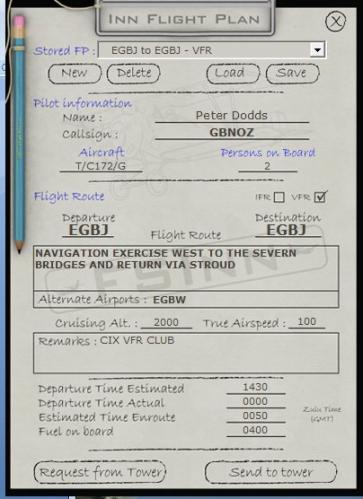 INN FLIGHT PLAN
Stored FP : EGBJ to EGBJ - VFR
New Delete Load Save
Pilot information
Name : Peter Dodds
Callsign : GBNOZ
Aircraft Persons on Board
T/C172/G 2
Flight Route IFR VFR
Departure Destination
EGBJ Flight Route EGBJ
NAVIGATION EXERCISE WEST TO THE SEVERN
BRIDGES AND RETURN VIA STROUD
FSINN
Alternate Airports : EGBW
Cruising Alt. : 2000 True Airspeed : 100
Remarks : CIX VFR CLUB
Departure Time Estimated 1430
Departure Time Actual 0000 Zulu Time
Estimated Time Enroute 0050 (GMT)
Fuel on board 0400
Request from Tower Send to tower